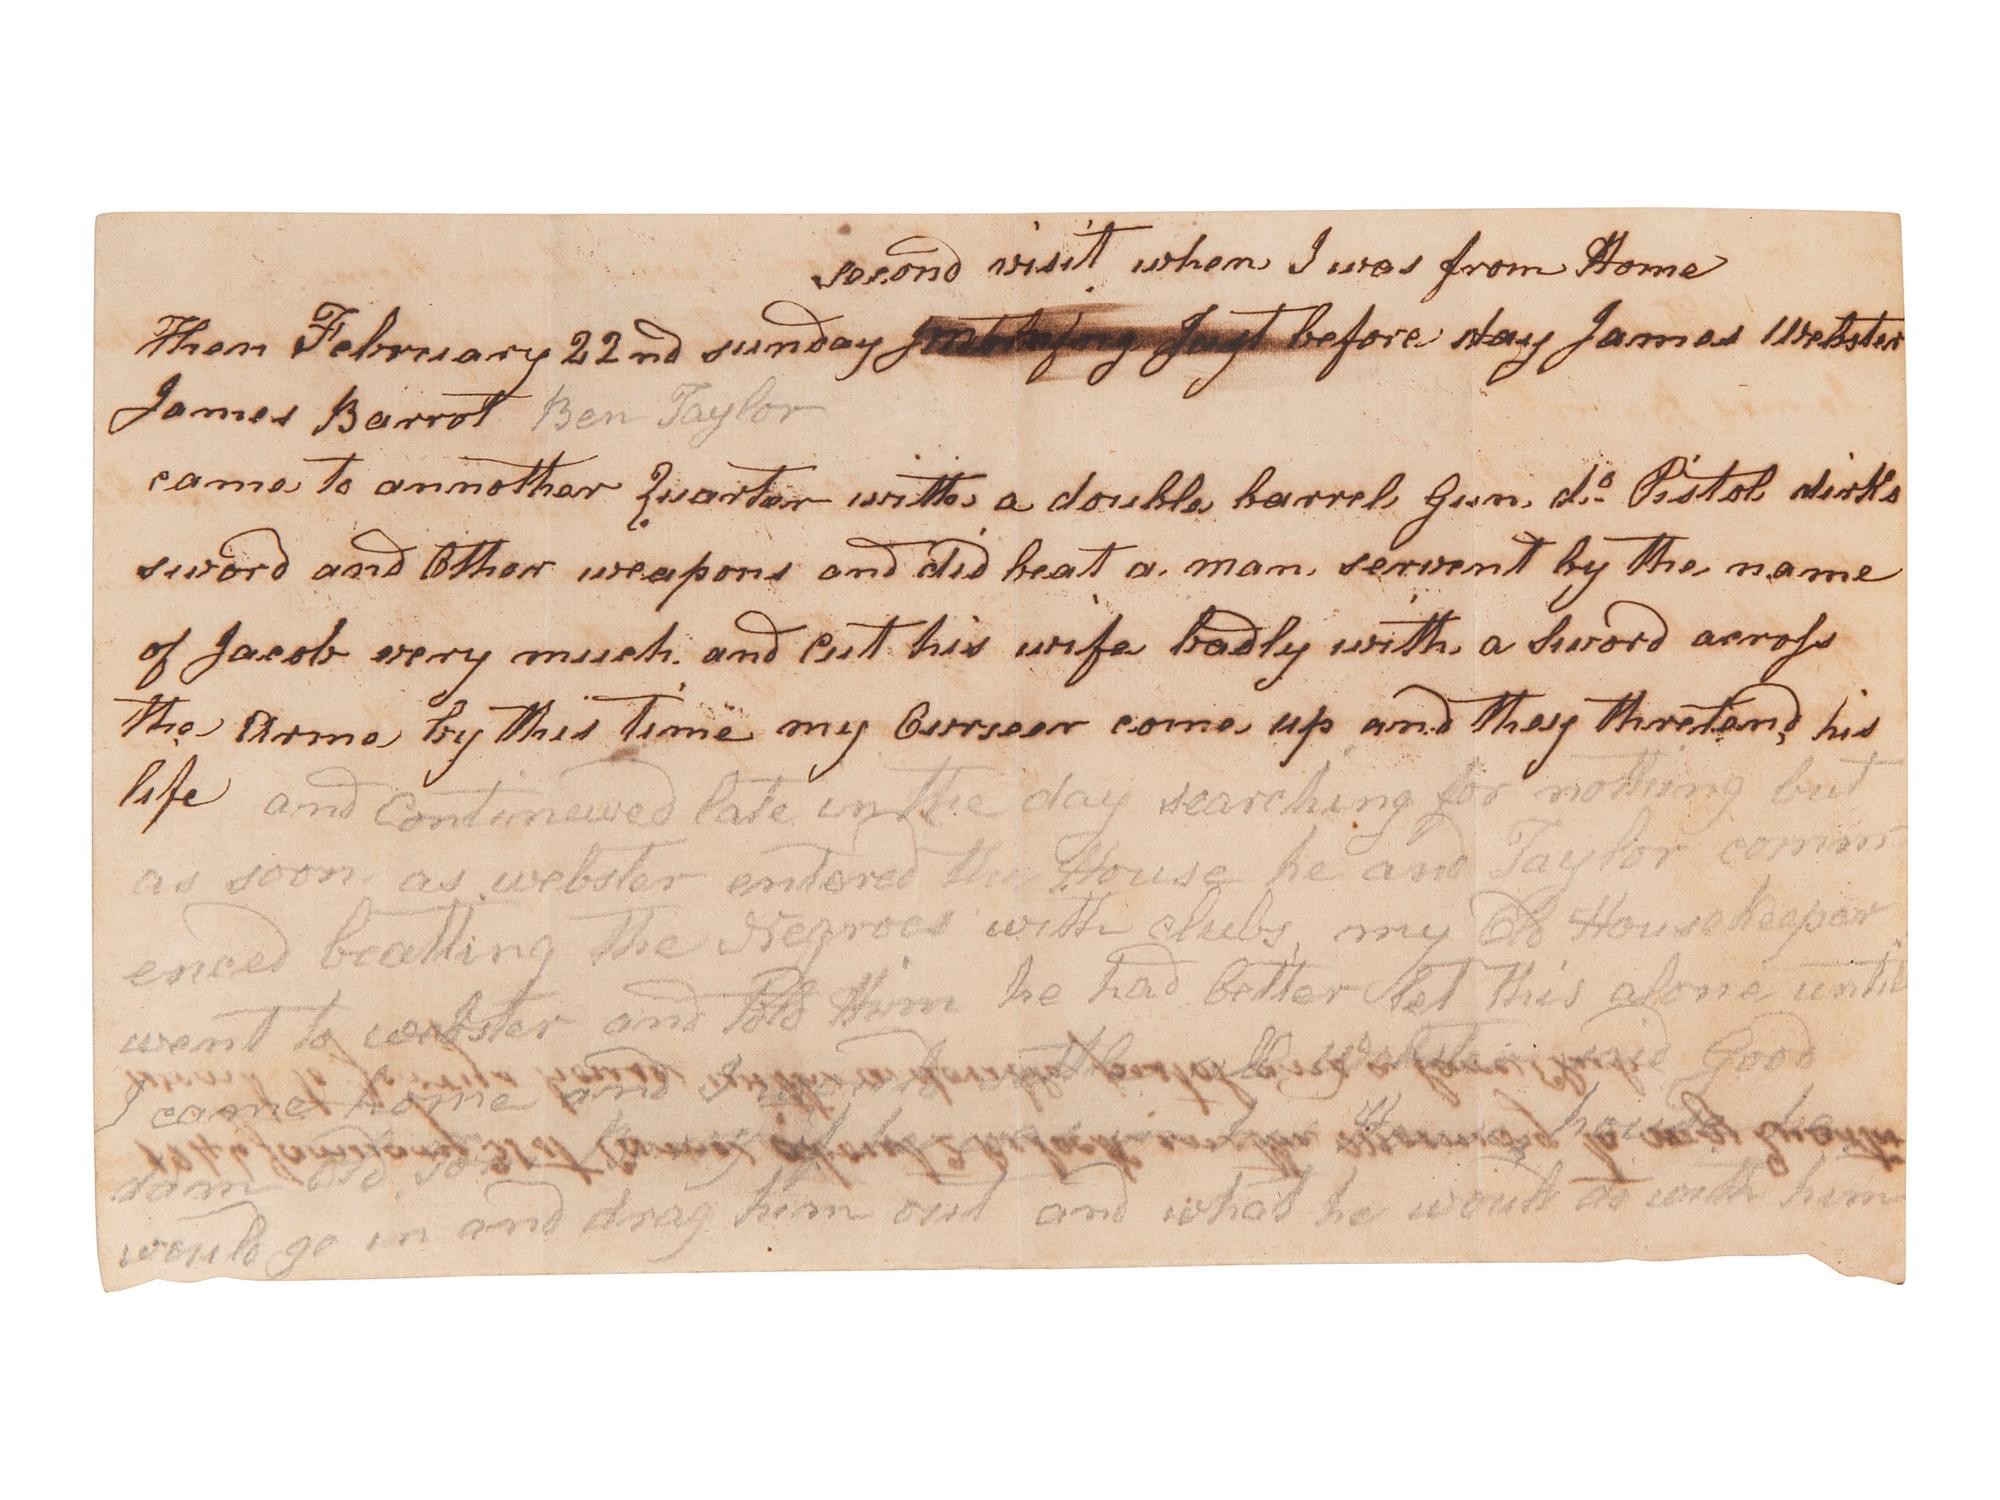 second visit when I was from Home
Then February 22nd sunday before day James Webster
James Barrot Ben Taylor
came to annother Quarter with a double barrel Gun do. Pistol dirks
sword and Other weapons and did beat a man servent by the name
of Jacob very much and Cut his wife badly with a Sword across
the Arme by this time my Overseer come up and they thretend his
life and Continewed late in the day searching for nothing but
as soon as webster entered the House he and Taylor comm
enced beatting the Negroes with clubs, my Old Housekeeper
went to webster and told Him he had better let this alone until
I came home and Webster said Good
dam old house he
would go in and drag him out and what he would do with him